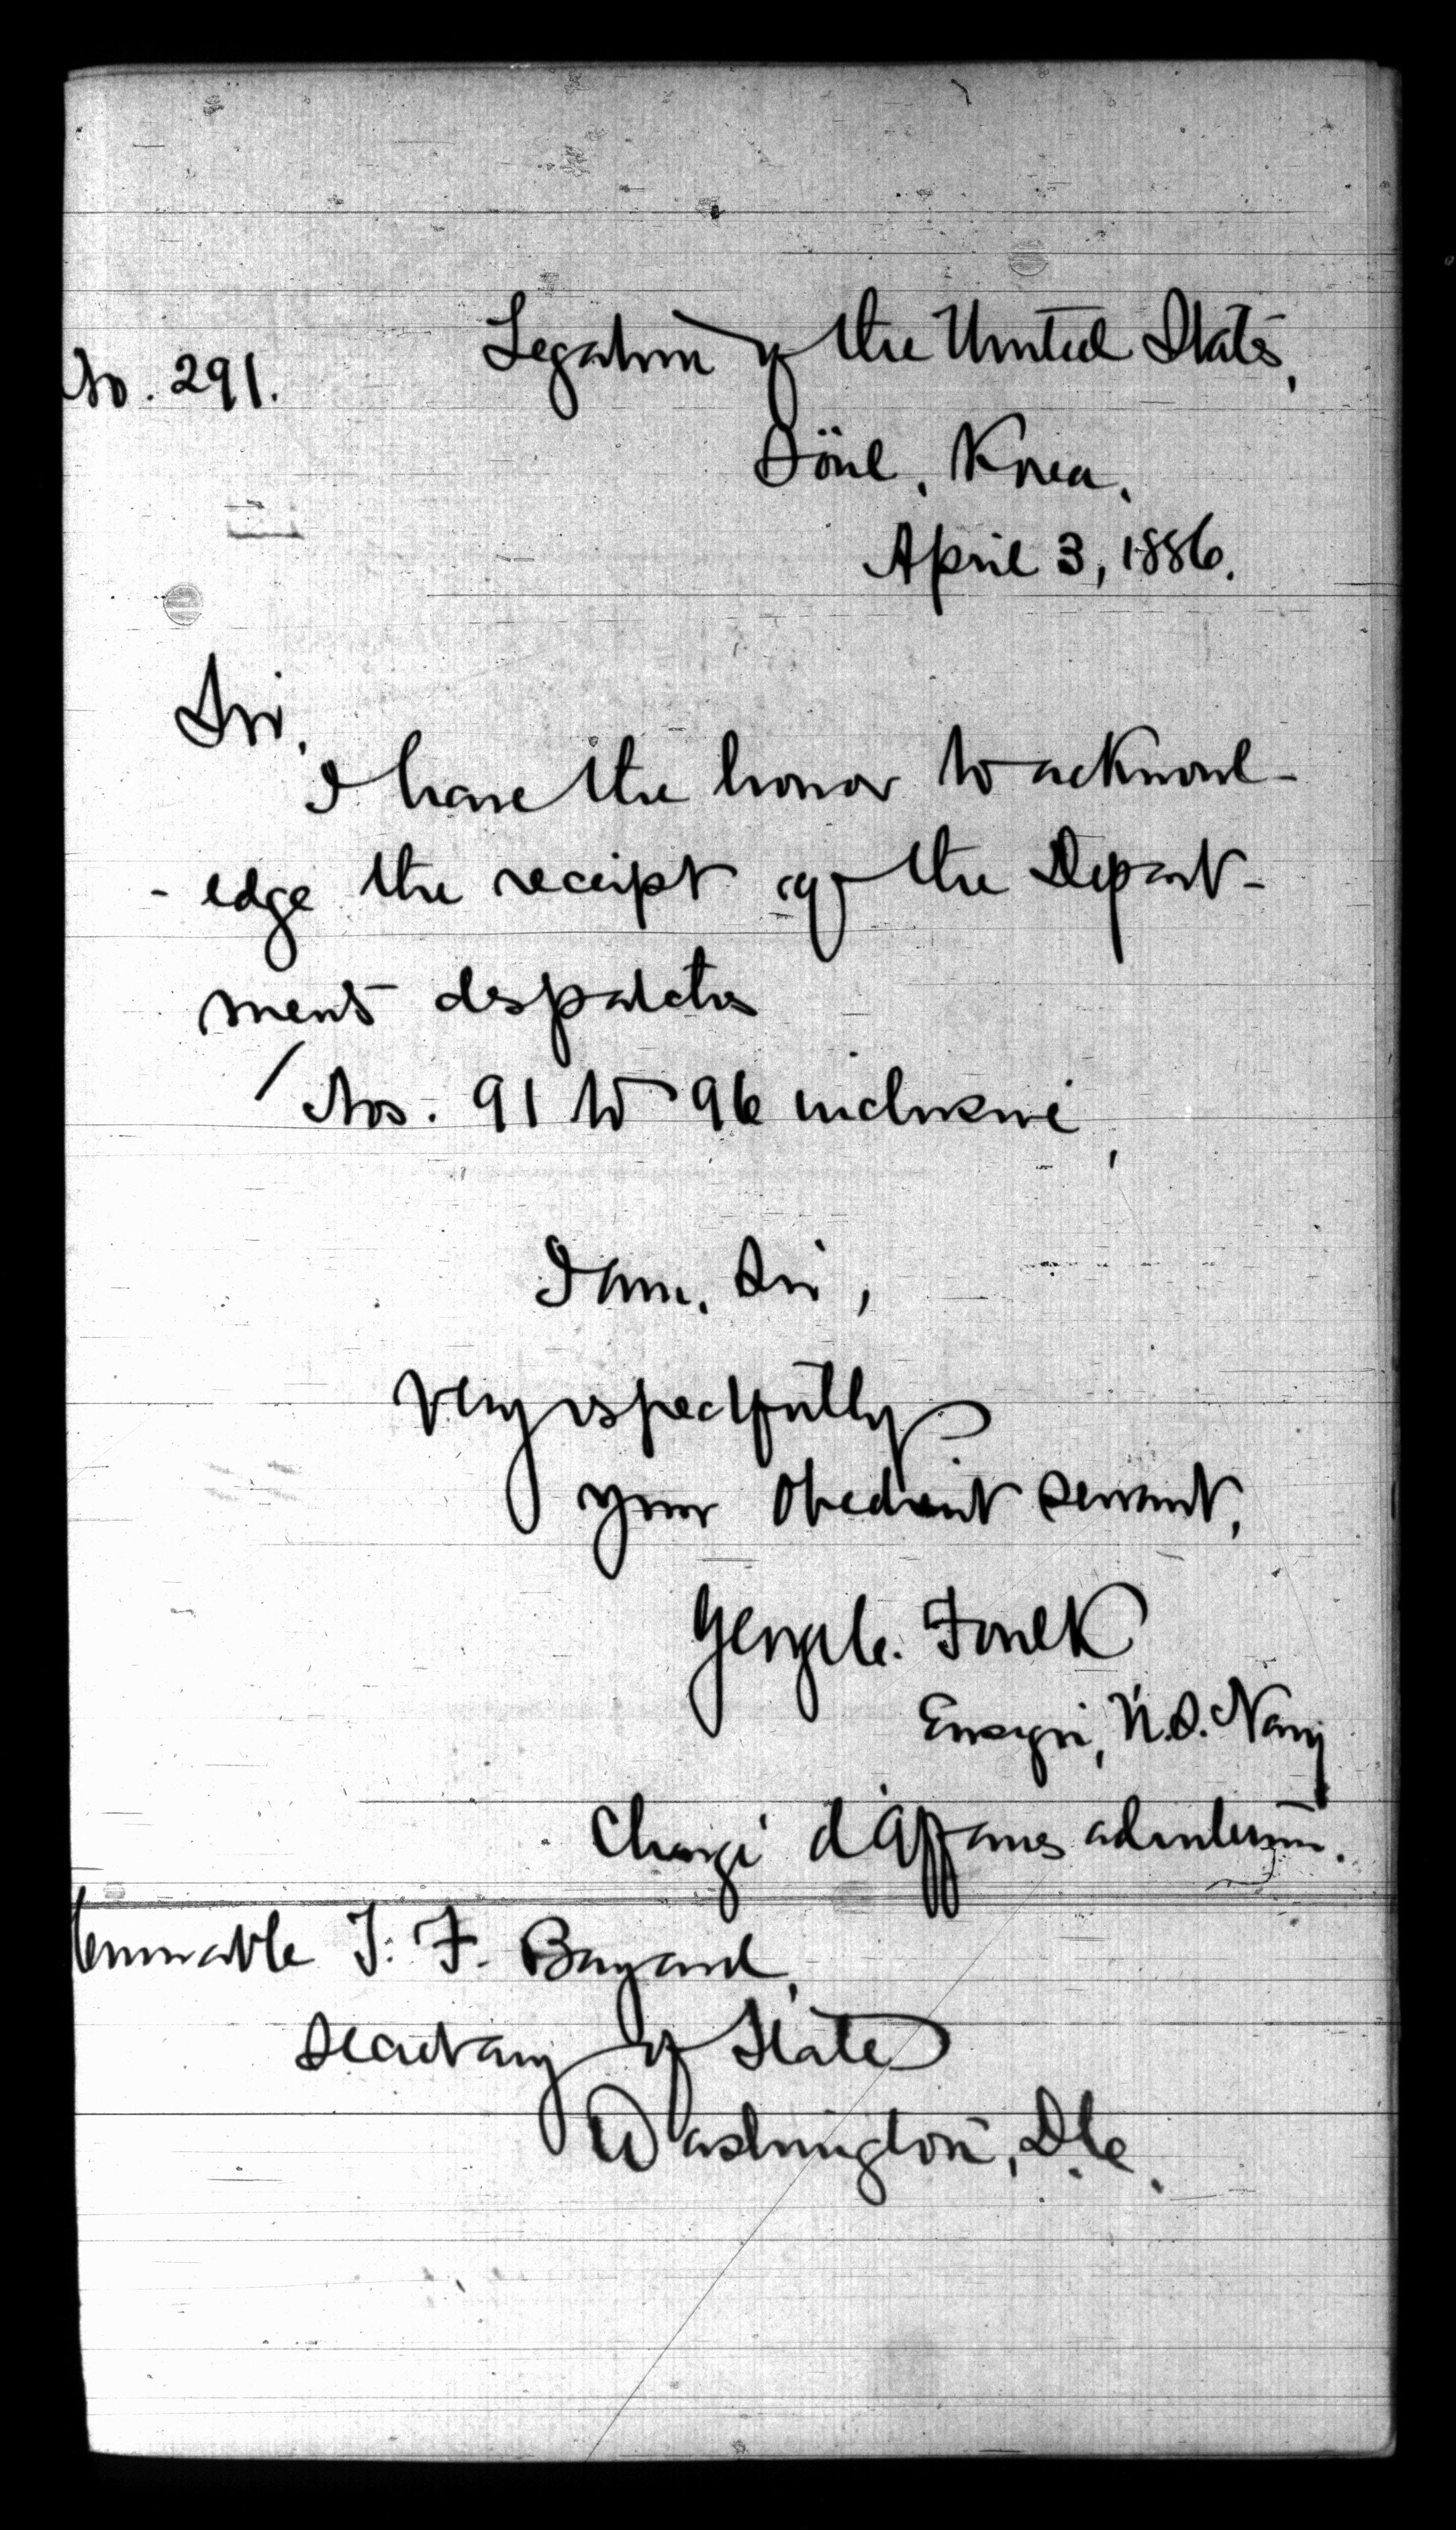 No. 291.
Legation of the United States,
Söul, Korea,
April 3, 1886.
Sir,
I have the honor to acknowl-
- edge the receipt of the Depart-
ment despatches
/ Nos. 91 to 96 inclusive,
I am, Sir,
Very respectfully
your obedient servant,
George C. Foulk
Ensign, U.S. Navy
Chargé d'Affaires ad interim.
Honorable T. F. Bayard,
Secretary of State
Washington, D.C.